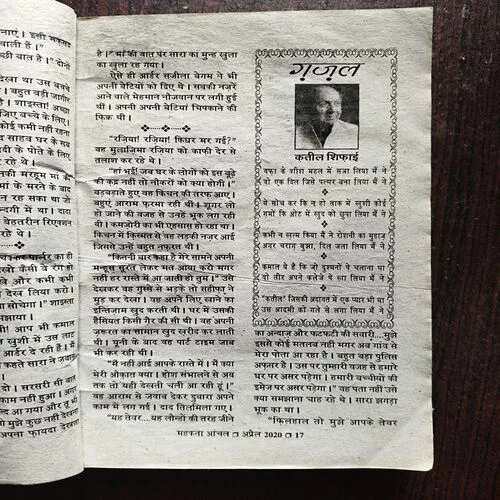 नाएं। इसी मक़सद
वाली है।"
च्छी बात है।" दोनों
देखा था उस वक्त
बहुत बड़ी जागीर
है। शाइस्ता! अच्छा
जिए बच्चे के लिए।
कोई कमी नहीं रहना
साहब घर के सब
गादी के पोते के लिए
रहे थे।
की मरहूम मां की
मां के मरने के बाद
रह सका था जो
न्दगी में था। दाद
बेहतरीन रिएक्शन
रहे थे।
कैसी वे रंग हो
और कभी कभी
देख लिया करो।
सोचेगा।" शाइस्ता
आप भी कमाल
खुशी में उस लाट
ऑर्डर दे रही हैं। मैं
कहते सारा ने जवाब
दो। सरसरी सी बात
काम नहीं हुआ। आप
आ गया और तू भी
मुझे कुछ नहीं देखना
अपना फायदा देखता
है।" मां की बात पर सारा का मुन्ह खुला
का खुला रह गया।
ऐसे ही आर्डर सजीला बेगम ने भी
अपनी बेटियों को दिए थे। सबकी नजरें
आने वाले मेहमान नौजवान पर लगी हुई
थीं। अपनी अपनी बेटियां चिपकाने की
फिक्र थी।
"रज़िया! रज़िया! किधर मर गई?"
वह मुलाज़िमा रज़िया को काफी देर से
तलाश कर रहे थे।
"हां भई! जब घर के लोगों को इस बूढ़े
की कद्र नहीं तो नौकरों को क्या होगी।"
बड़बड़ाते हुए वह किचन की तरफ आए।
बहुएं आराम फरमा रही थीं। शूगर लो
हो जाने की वजह से उन्हें भूक लग रही
थी। कमजोरी का भी एहसास हो रहा था।
किचन में किस्मत से वह लड़की नजर आई
जिससे उन्हें बहुत नफ़रत थी।
"कितनी बार कहा है मेरे सामने अपनी
मन्हूस सूरत लेकर मत आया करो मगर
नहीं हर रास्ते में आ जाती हो तुम।" उसे
देखकर वह गुस्से से भड़के तो लतीफ़ा ने
मुड़ कर देखा। वह अपने लिए खाने का
इन्तिज़ाम खुद करती थी। घर में उसकी
हैसियत किसी गैर की सी थी। वह अपनी
ज़रूरत का सामान खुद खरीद कर लाती
थी। यूनी के बाद वह पार्ट टाइम जाब
भी कर रही थी।
"मैं नहीं आई आपके रास्ते में। मैं क्या
मेरी औकात क्या। होश संभालने से अब
तक तो यही देखती भर्ती आ रही हूं।"
वह आराम से जवाब देकर दुबारा अपने
काम में लग गई। दाद तिलमिला गए।
"यह तेवर....यह लौन्डों की तरह जीने
ग़ज़ल
कतील शिफाई
वफ़ा के शीश महल में सजा लिया मैं ने
वो एक दिल जिसे पत्थर बना लिया मैं ने
ये सोच कर कि न हो ताक में खुशी कोई
ग़मों कि ओट में खुद को छुपा लिया मैं ने
कभी न ख़त्म किया मैं ने रोशनी का मुहाज़
अगर चराग़ बुझा, दिल जला लिया मैं ने
कमाल ये है कि जो दुश्मनों पे चलाना था
वो तीर अपने कलेजे पे खा लिया मैं ने
"क़तील" जिसकी अदावत में एक प्यार भी था
उस आदमी को गले से लगा लिया मैं ने
का अन्दाज और फटफटी की सवारी...मुझे
इससे कोई मतलब नहीं मगर अब गांव से
मेरा पोता आ रहा है। बहुत बड़ा पुलिस
अफ़सर है। उस पर तुम्हारी वजह से हमारे
घर पर असर पड़ेगा। हमारी बच्चीयों की
इमेज पर असर पड़ेगा।" वह पता नहीं उसे
क्या समझाना चाह रहे थे। सारा झगड़ा
भूक का था।
"फ़िलहाल तो मुझे आपके तेवर
महकता आंचल □ अप्रैल 2020 □ 17